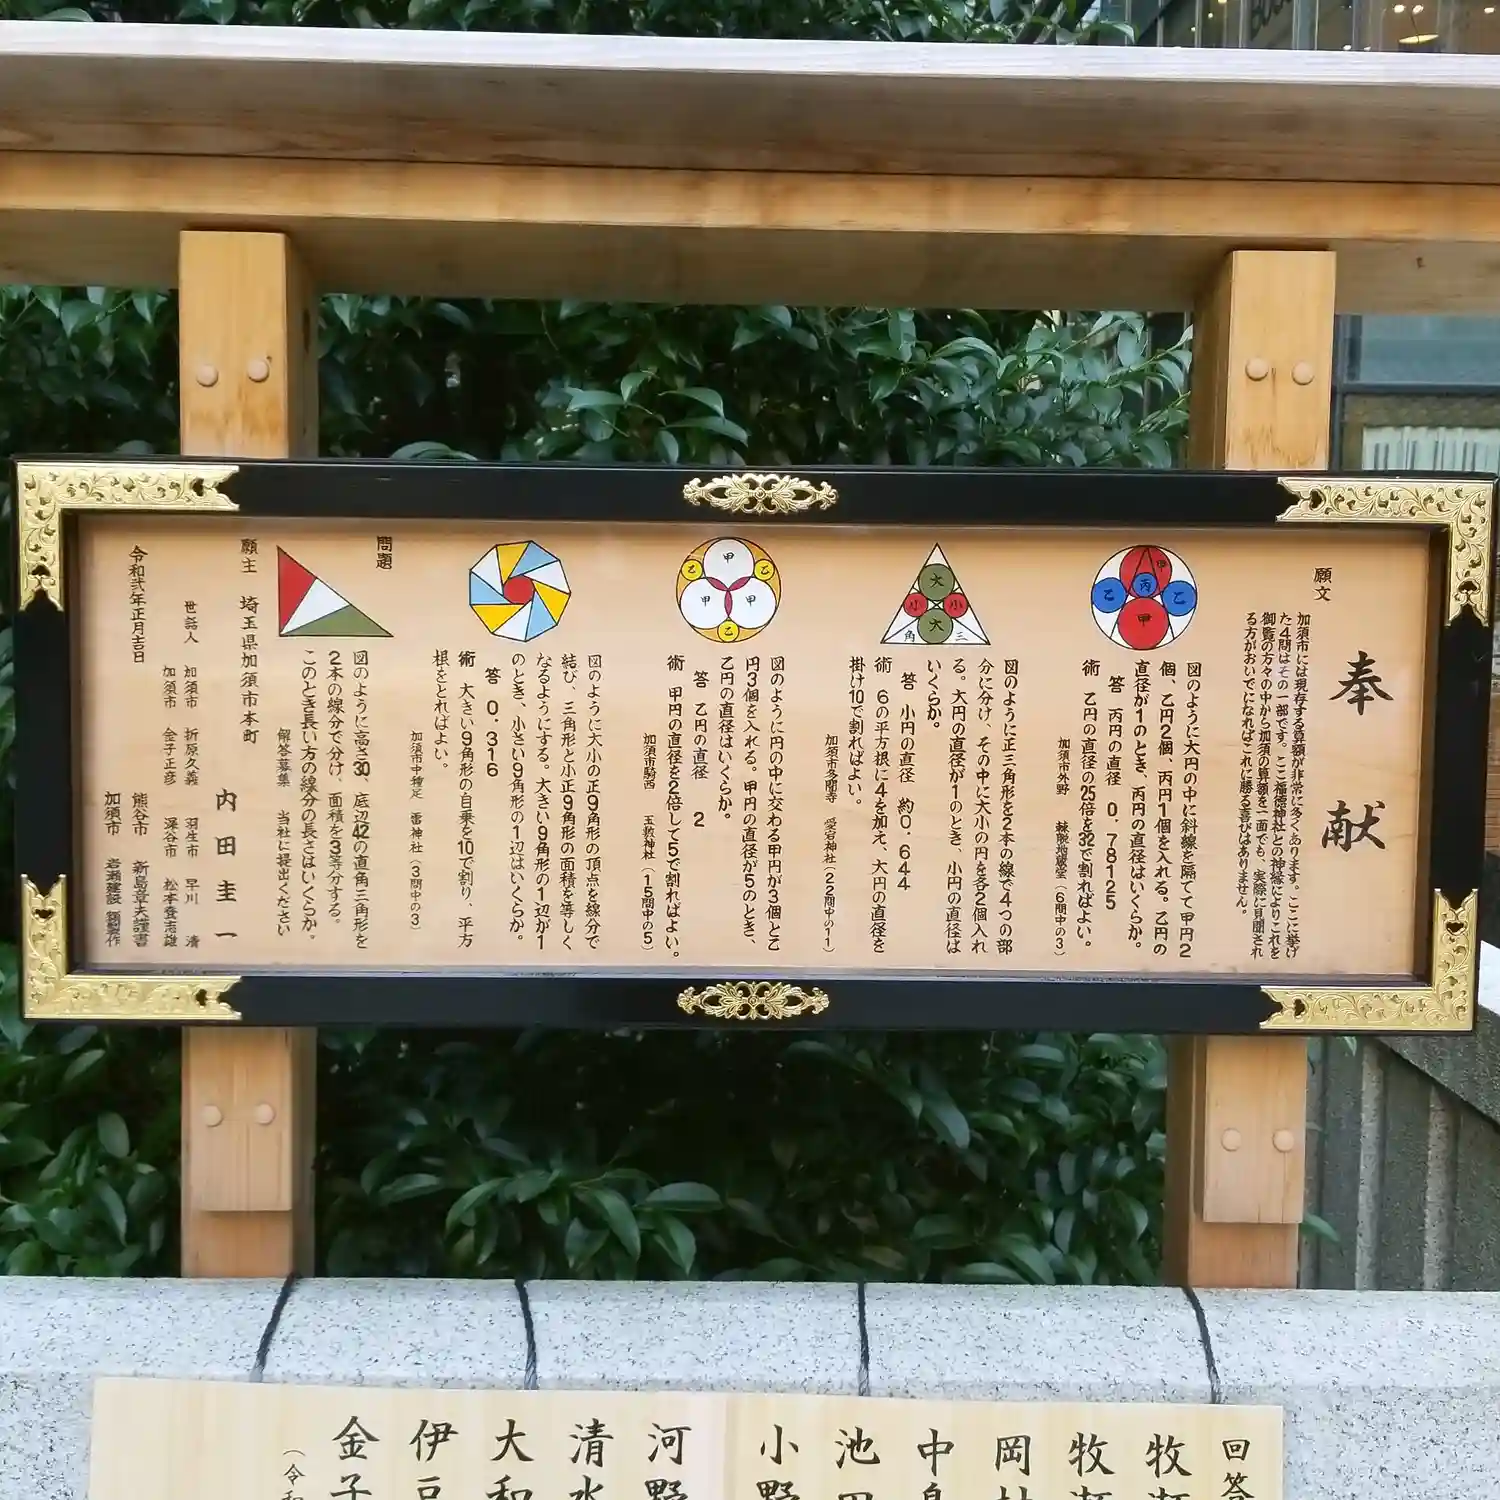 奉献
願文
加須市には現存する算額が非常に多くあります。ここに挙げ
た4問はその一部です。ここ福徳神社との神縁によりこれを
御覧の方々の中から加須の算額を一面でも、実際に見聞され
る方がおいでになればこれに勝る喜びはありません。
甲
乙
丙
乙
甲
図のように大円の中に斜線を隔てて甲円2
個、乙円2個、丙円1個を入れる。乙円の
直径が1のとき、丙円の直径はいくらか。
答 丙円の直径 0.78125
術 乙円の直径の25倍を32で割ればよい。
加須市外野 地蔵堂(6問中の3)
大
小
小
大
三
角
図のように正三角形を2本の線で4つの部
分に分け、その中に大小の円を各2個入れ
る。大円の直径が1のとき、小円の直径は
いくらか。
答 小円の直径 約0.644
術 6の平方根に4を加え、大円の直径を
掛け10で割ればよい。
加須市多聞寺 愛宕神社(22問中の11)
甲
乙
乙
甲
甲
乙
図のように円の中に交わる甲円が3個と乙
円3個を入れる。甲円の直径が5のとき、
乙円の直径はいくらか。
答 乙円の直径 2
術 甲円の直径を2倍して5で割ればよい。
加須市騎西 玉敷神社(15問中の5)
図のように大小の正9角形の頂点を線分で
結び、三角形と小正9角形の面積を等しく
なるようにする。大きい9角形の1辺が1
のとき、小さい9角形の1辺はいくらか。
答 0.316
術 大きい9角形の自乗を10で割り、平方
根をとればよい。
加須市中種足 雷神社(3問中の3)
問題
図のように高さ30、底辺42の直角三角形を
2本の線分で分け、面積を3等分する。
このとき長い方の線分の長さはいくらか。
解答募集 当社に提出ください
願主 埼玉県加須市本町
内田圭一
世話人 加須市 折原久義 羽生市 早川 清
加須市 金子正彦 深谷市 松本登志雄
令和弐年正月吉日
熊谷市 新島章夫謹書
加須市 岩瀬建設 謹製作
回答
牧
牧
岡
中
池
小野
河野
清水
大和
伊豆
金子
(令和